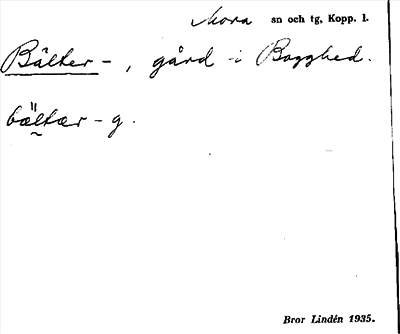 Mora sn och tg, Kopp. l.
Bälter-, gård i Bogghed.
bältær-g.
Bror Lindén 1935.